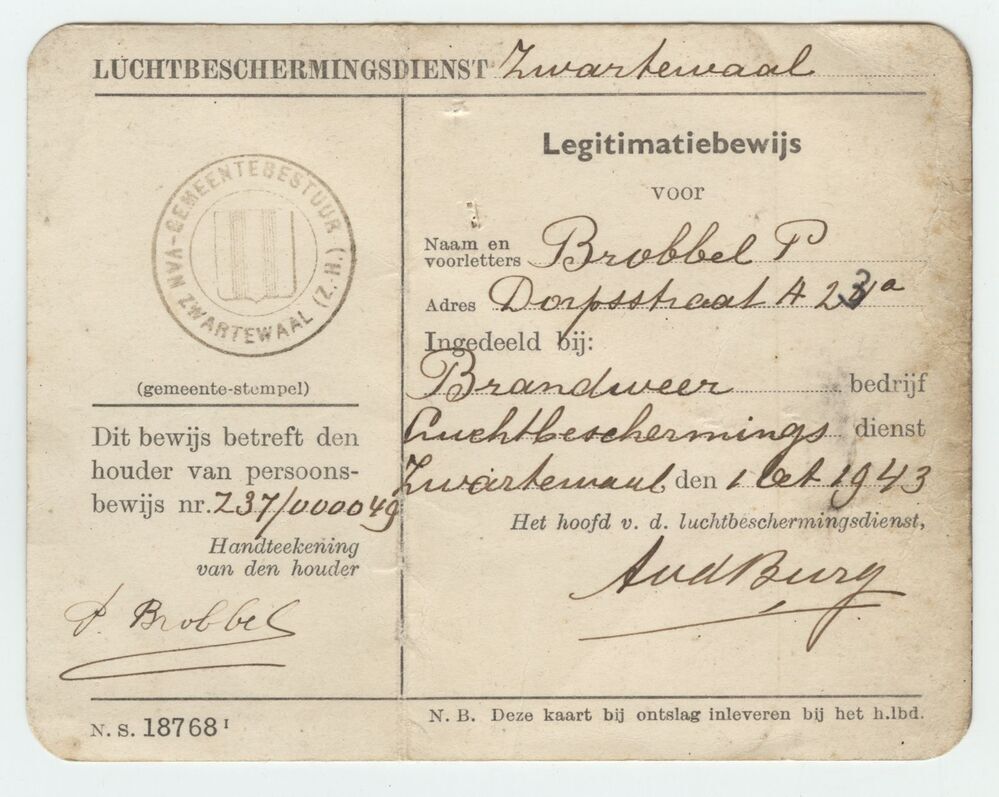 LUCHTBESCHERMINGSDIENST Zwartewaal
GEMEENTEBESTUUR (Z.H.) VAN ZWARTEWAAL
(gemeente-stempel)
Dit bewijs betreft den
houder van persoons-
bewijs nr. Z37/000049
Handteekening
van den houder
P. Brobbel
N. S. 18768 I
Legitimatiebewijs
voor
Naam en voorletters Brobbel P
Adres Dorpsstraat A 23a
Ingedeeld bij:
Brandweer bedrijf
Luchtbeschermings dienst
Zwartewaal den 1 Oct 1943
Het hoofd v. d. luchtbeschermingsdienst,
AvdBurg
N. B. Deze kaart bij ontslag inleveren bij het h.lbd.